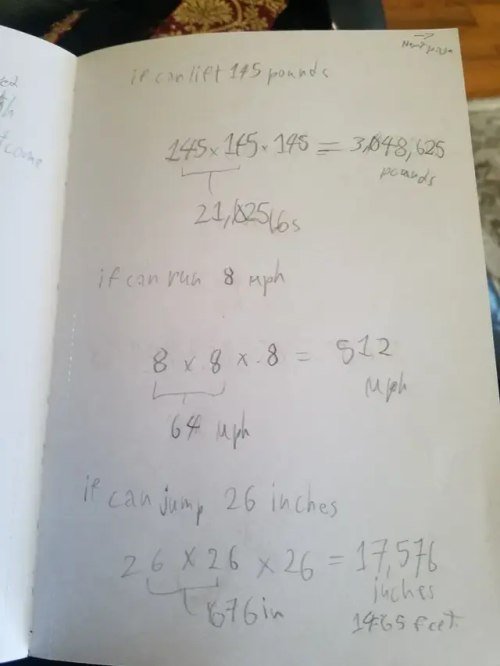 →
Next page
if can lift 145 pounds
145 x 145 x 145 = 3,048,625
pounds
21,025 lbs
if can run 8 mph
8 x 8 x 8 = 512
mph
64 mph
if can jump 26 inches
26 x 26 x 26 = 17,576
inches
676 in
1465 feet